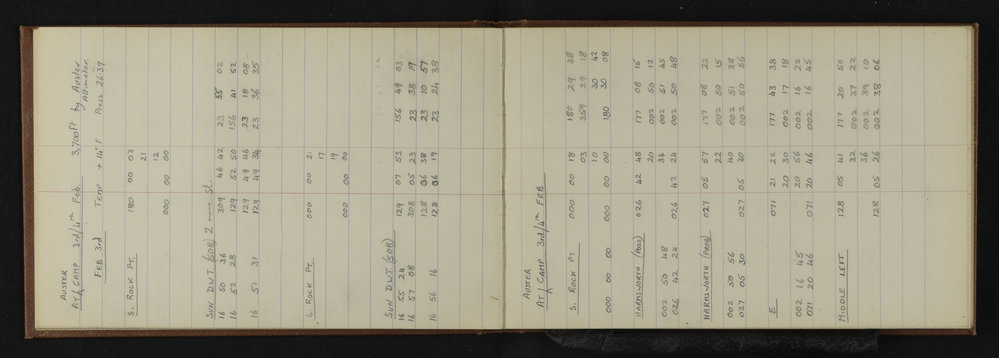 AUSTER
AT CAMP 3rd/4th Feb 3,700ft by Auster Altimeter.
FEB 3rd TEMP +14°F Press 26.39
S. ROCK PT. 180 00 03
21
12
000 00 00
SUN D.W.T (508) 2 mins sl.
16 50 36 309 46 42 23 55 02
16 52 28 129 52 50 156 41 52
129 49 46 23 18 08
16 51 31 129 49 34 23 36 35
S. ROCK PT. 000 00 21
17
19
000 00 00
SUN D.W.T (508)
16 55 24 129 07 53 156 49 03
16 57 08 308 05 23 23 38 19
128 06 38 23 10 57
16 56 16 128 06 19 23 24 38
AUSTER
AT CAMP 3rd/4th FEB
S. ROCK PT. 000 00 18 180 29 38
03 369 29 18
10 30 42
000 00 00 000 00 00 180 30 08
HARMSWORTH (POSS) 026 42 48 177 08 15
20 002 50 12
002 50 48 34 002 51 45
026 42 24 026 42 24 002 50 48
HARMSWORTH (PROB) 027 05 57 177 08 22
22 002 50 15
002 50 56 40 002 51 38
027 05 30 027 05 30 002 50 56
E 071 21 22 177 43 38
20 30 002 17 18
002 16 45 20 56 002 16 22
071 20 46 071 20 46 002 16 45
MIDDLE LEFT 128 05 41 177 20 50
32 002 37 22
36 002 39 10
128 05 26 002 38 06